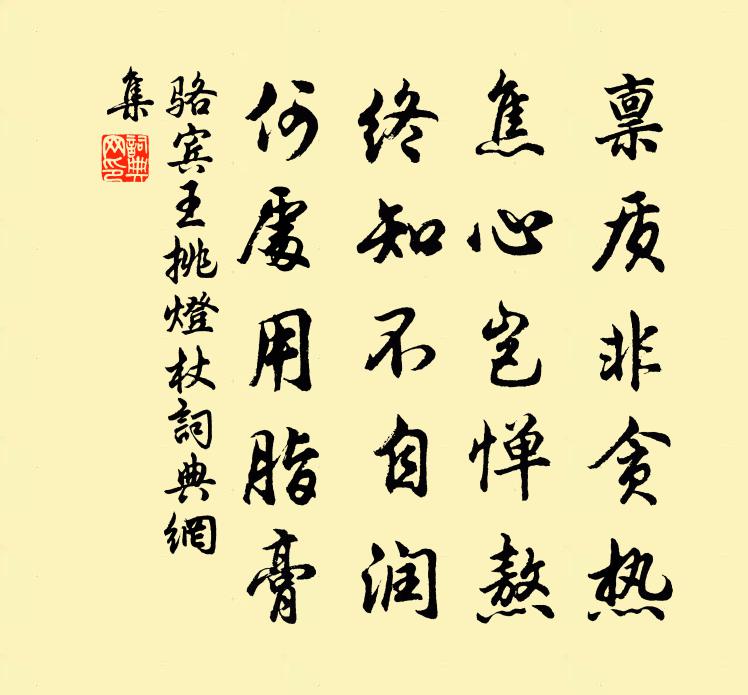 禀质非贪热
焦心岂惮熬
终知不自润
何處用脂膏
骆宾王挑燈杖詞典網
集
詞典網印